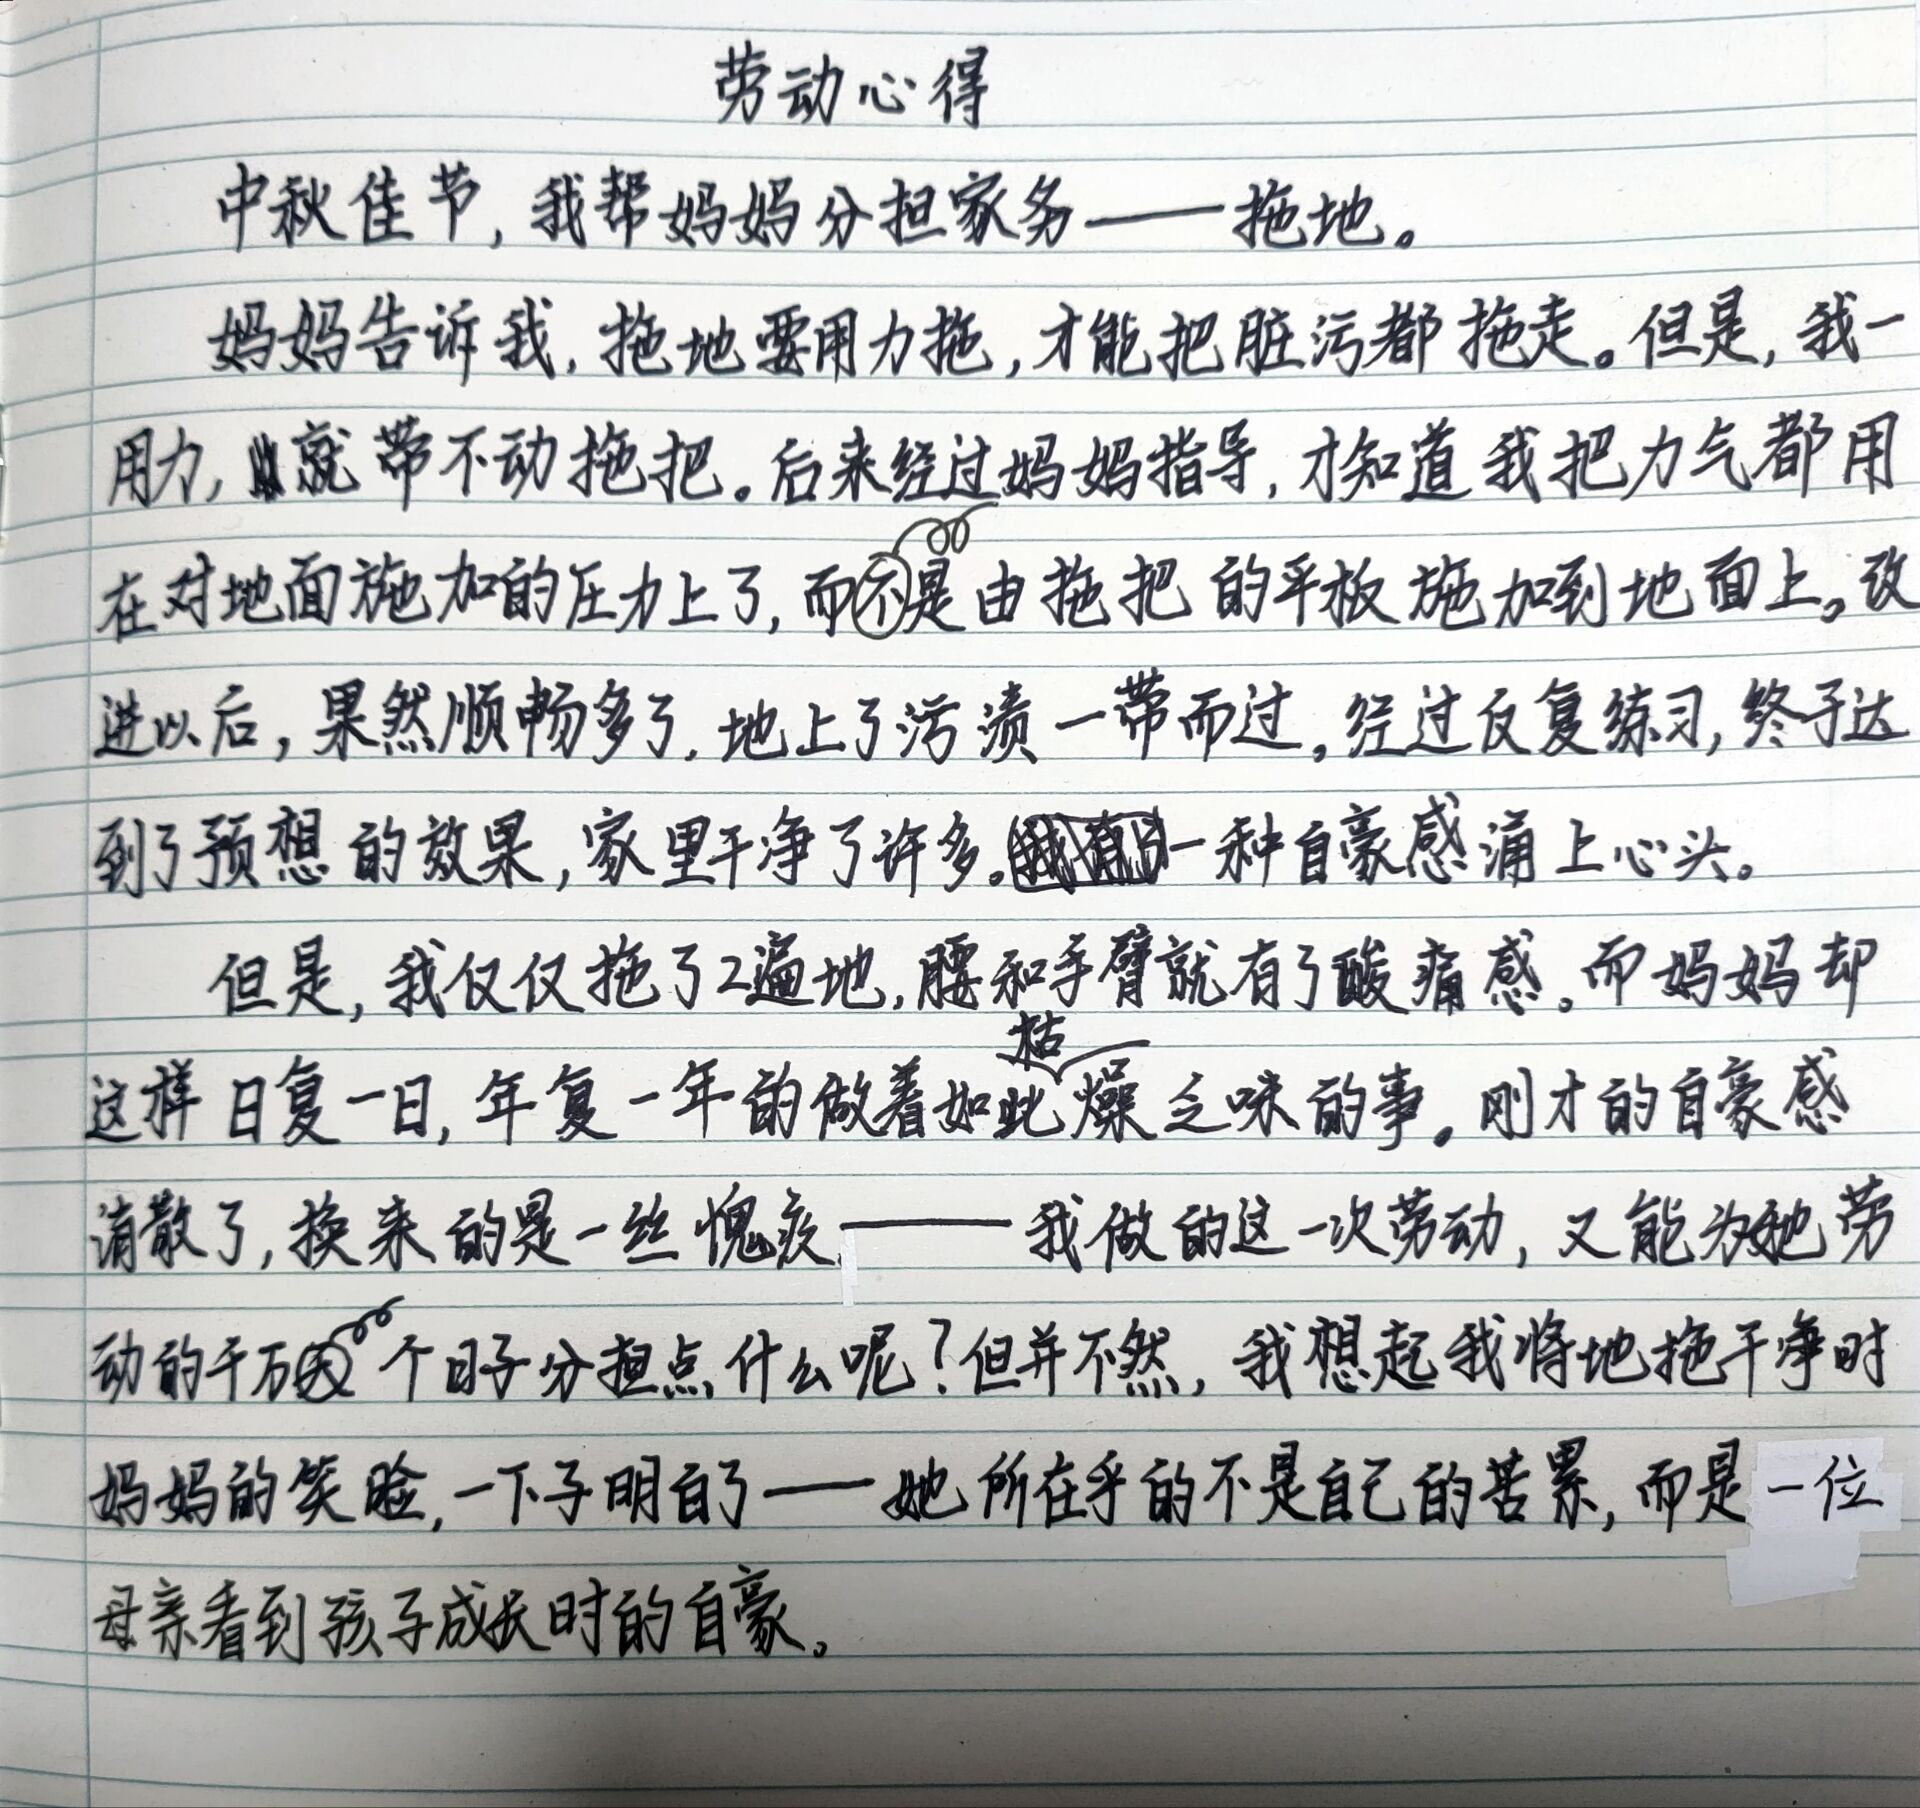 劳动心得
中秋佳节，我帮妈妈分担家务——拖地。
妈妈告诉我，拖地要用力拖，才能把脏污都拖走。但是，我一
用力，就带不动拖把。后来经过妈妈指导，才知道我把力气都用
在对地面施加的压力上了，而是由拖把的平板施加到地面上。改
进以后，果然顺畅多了，地上了污渍一带而过。经过反复练习，终于达
到了预想的效果，家里干净了许多。一种自豪感涌上心头。
但是，我仅仅拖了2遍地，腰和手臂就有了酸痛感。而妈妈却
这样日复一日，年复一年的做着如此枯燥乏味的事。刚才的自豪感
消散了，换来的是一丝愧疚——我做的这一次劳动，又能为她劳
动的千万个日子分担点什么呢？但并不然，我想起我将地拖干净时
妈妈的笑脸，一下子明白了——她所在乎的不是自己的苦累，而是一位
母亲看到孩子成长时的自豪。